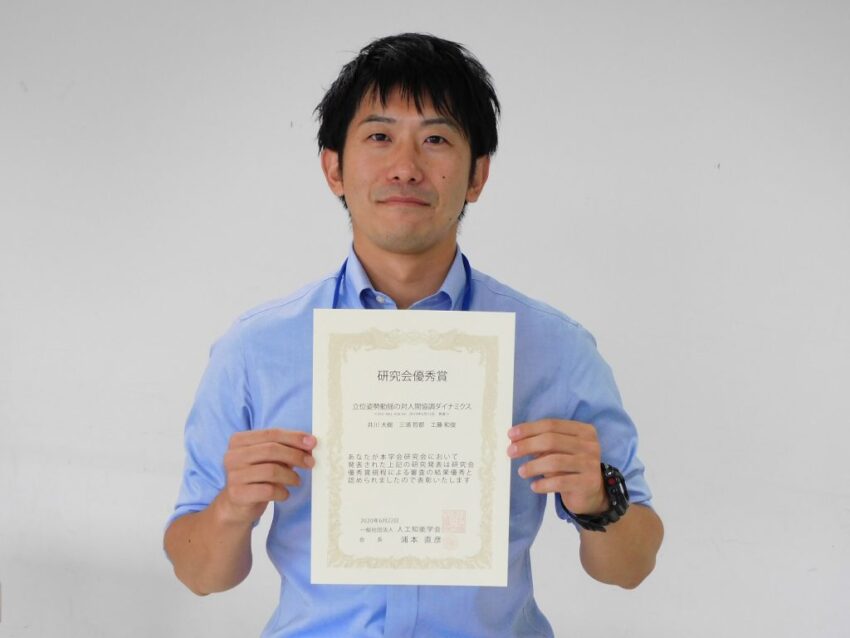 研究会優秀賞
立位姿勢動揺の対人間協調ダイナミクス
井川 大樹 三浦 哲都 工藤 和俊
あなたが本学会研究会において
発表された上記の研究発表は研究会
優秀賞規程による審査の結果優秀と
認められましたので表彰いたします
2020年6月22日
一般社団法人 人工知能学会
会 長 浦本 直彦